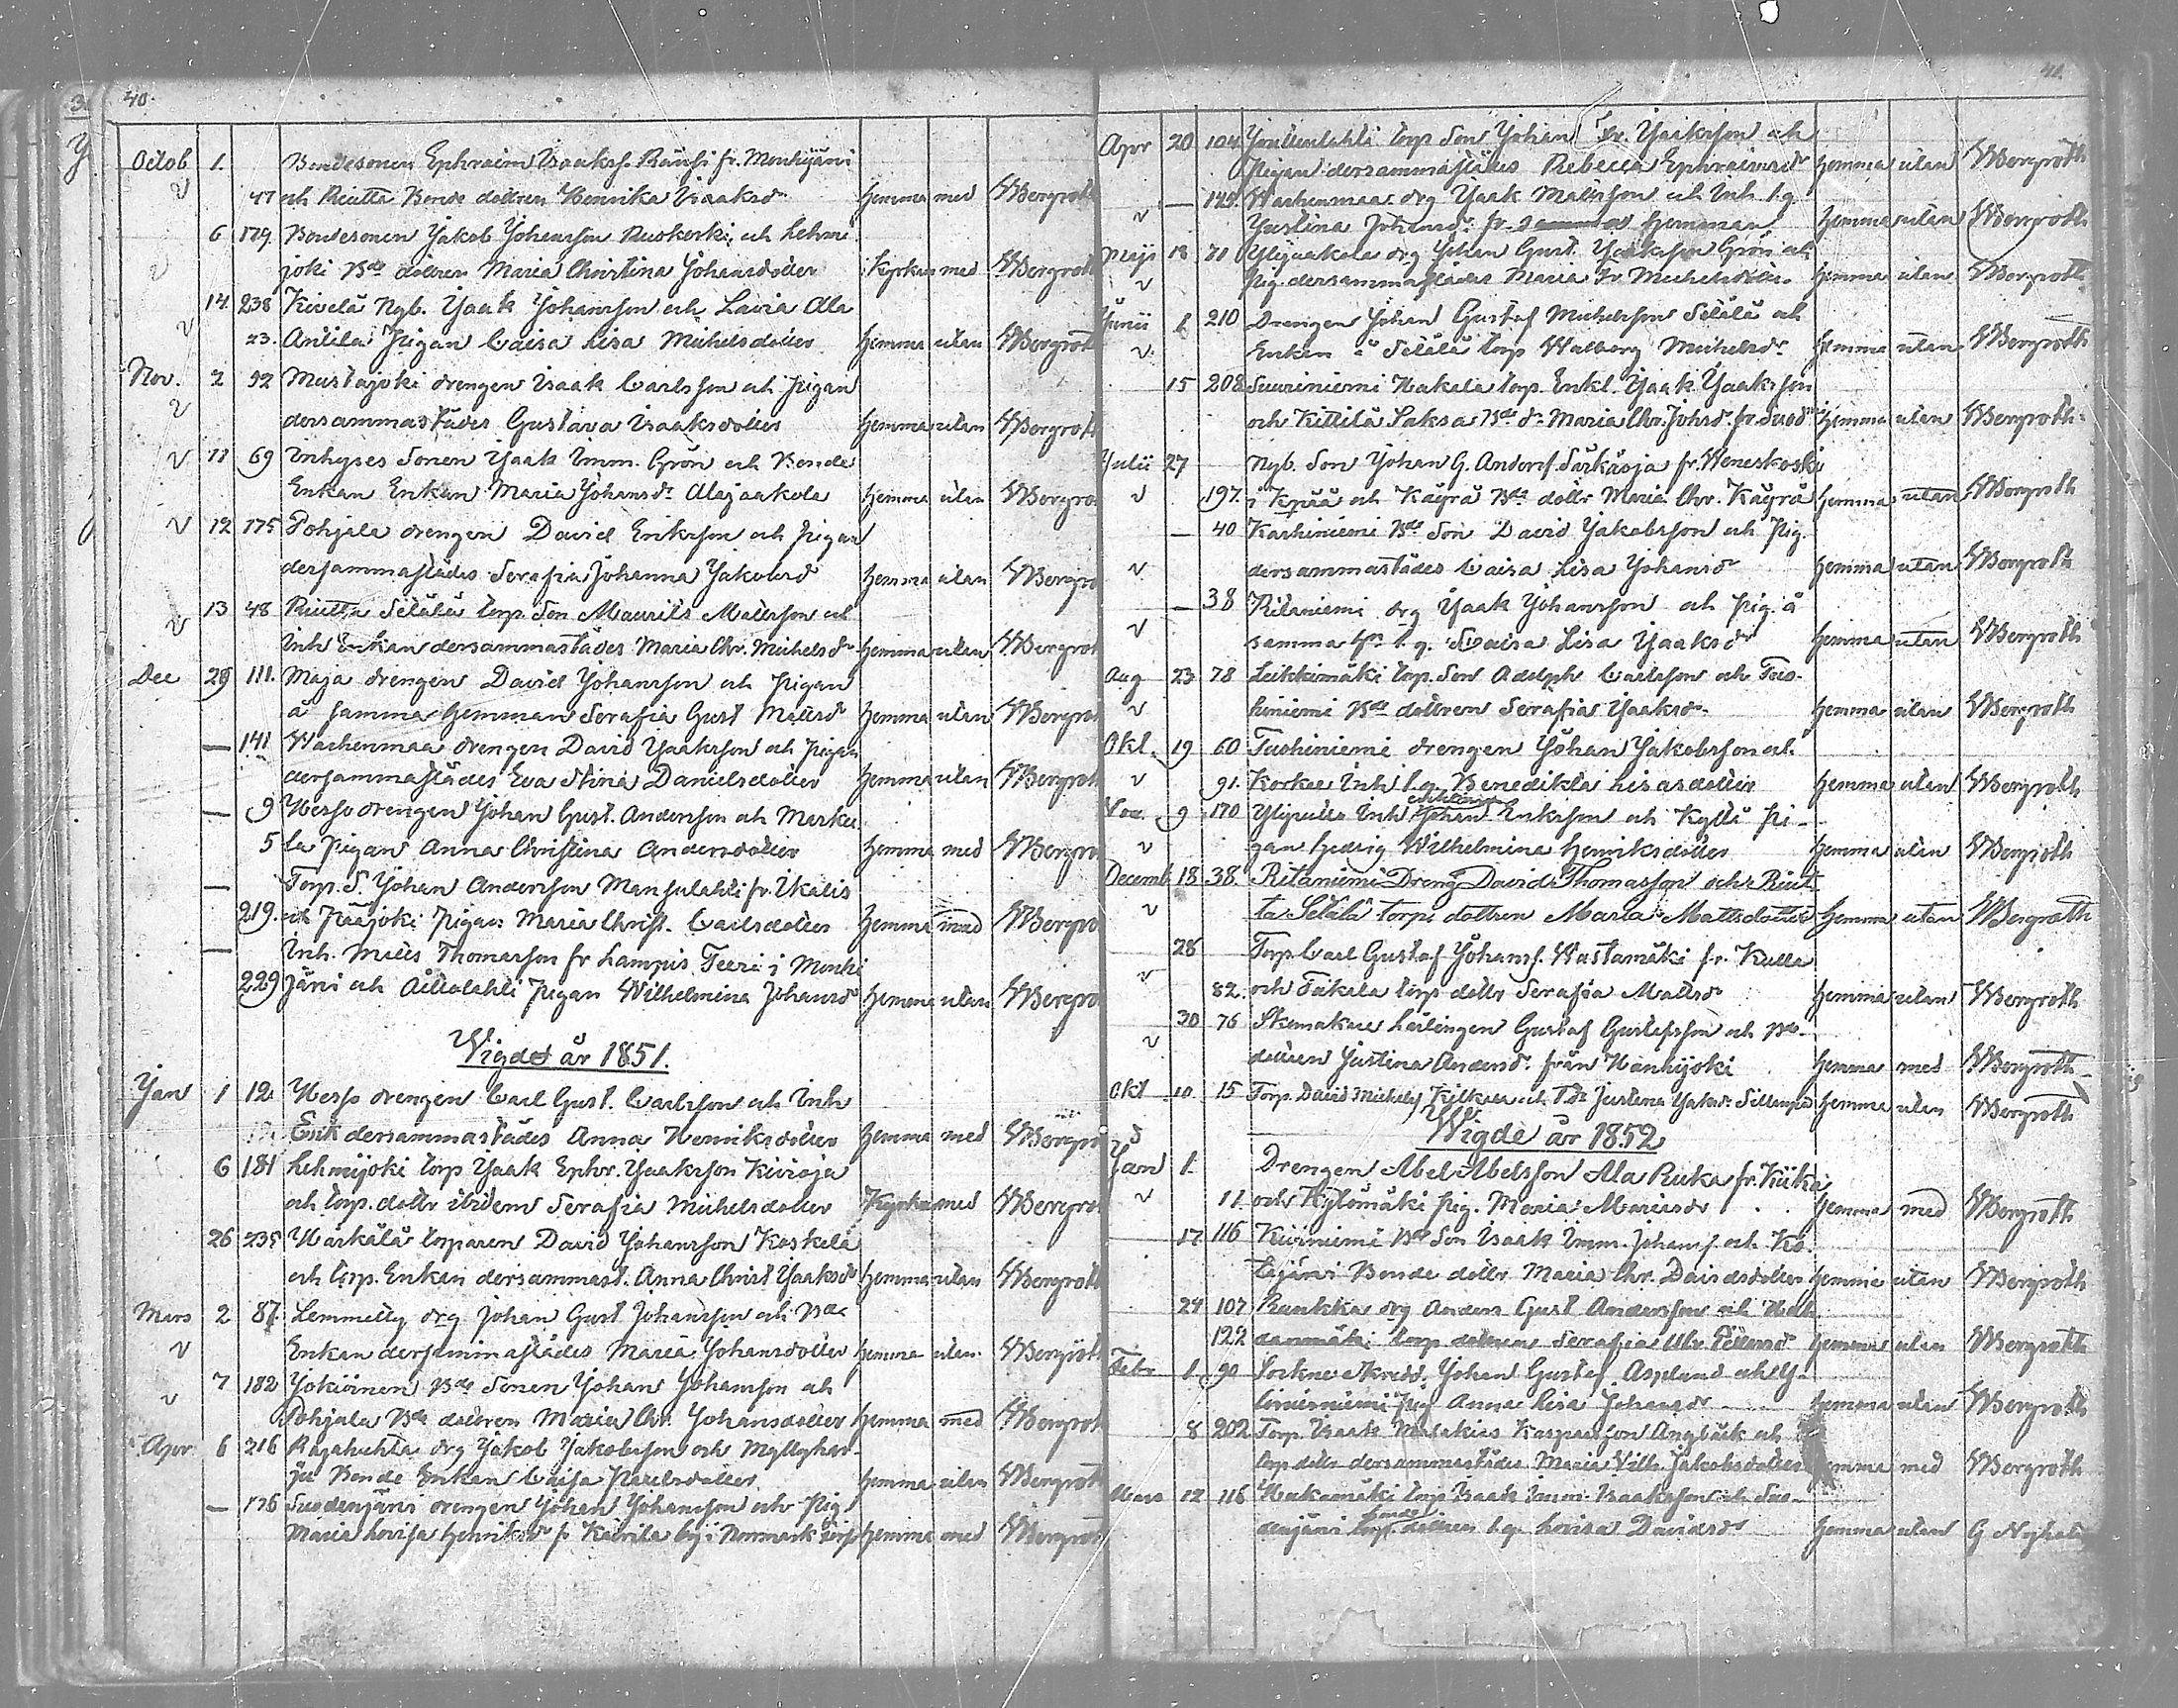 40.
Octob 1. Bondesonen Ephraim Isaakss. Raussi fr. Monhijärvi
47 och Riutta Bonde dottren Henrika Isaaksdr hemma med WBergroth
6 179 Bondesonen Jakob Johansson Ruokoski och Lehmi
joki Bde dottren Maria Christina Johansdotter Kyrkan med WBergroth
14. 238 Kivelä Nyb. Isaak Johansson och Lavia Ala
23. Antila Pigan Caisa Lisa Michelsdotter hemma utan WBergroth
Nov. 2 92 Mustajoki drengen Isaak Carlsson och pigan
dersammastädes Gustava Isaaksdotter hemma utan WBergroth
11 69 Inhyses Sonen Isaak Imm. Grön och Bonde
Enkan Enkan Maria Johansdr Alajaakola hemma utan WBergro
12 175 Pohjala drengen David Eriksson och pigan
dersammastädes Serafia Johanna Jakobsd hemma utan WBergro
13 48 Riutta Sëtälä torp. Son Maurits Mattsson och
Inh Enkan dersammastädes Maria Chr. Michelsdr hemma utan WBergrot
Dec 29 111. Maja drengen David Johansson och pigan
å samma hemman Serafia Gust Mattsdr hemma utan WBergrot
— 141 Wachenmaa drengen David Isaaksson och pigan
dersammastädes Eva Stina Danielsdotter hemma utan WBergrot
— 9 Hesso drengen Johan Gust. Andersson och Marku
5 la pigan Anna Christina Andersdotter hemma med WBergro
— Torp. S. Johan Andersson Mansulahti fr. Ikalis
219. och Pääjoki pigan Maria Christ. Carlsdotter hemma med WBergro
— Inh. Matts Thomasson fr Lampis Teeri i Monhi
229 järvi och Aittolahti pigan Wilhelmina Johansdr hemma utan WBergro
Wigde år 1851.
Jan 1 12 Hesso drengen Carl Gust. Carlsson och Inh
Enk dersammastädes Anna Henriksdotter hemma med WBergro
6 181 Lehmijoki torp Isaak Ephr. Isaaksson Kivioja
och torp. dottr ibidem Serafia Michelsdotter Kyrkan med WBergro
26 235 Harkälä torparen David Johansson Koskela
och torp. Enkan dersammast. Anna Christ Isaaksdr hemma utan WBergroth
Mars 2 87. Lemmetty drg Johan Gust Johansson och Bde
Enkan dersammastädes Maria Johansdotter hemma utan WBergroth
7 182 Jokioinen Bde Sonen Johan Johansson och
Pohjala Bde dottren Maria Chr. Johansdotter hemma med WBergrot
Apr 6 216 Rajahuhta drg Jakob Jakobsson och Myllyhar-
ju Bonde Enkan Caisa Paulsdotter hemma utan WBergroth
— 176 Suodenjärvi drengen Johan Johansson och Pig
Maria Lovisa Henriksdr fr Kairila by i Normark hemma med WBergrot
41.
Apr 20 104 torp Son Johan Fr. Isaaksson och
Pigan dersammastädes Rebecca Ephraimsdr hemma utan WBergroth
— 142 Wachenmaa drg Isaak Mattsson och Inh. l.q.
Justina Johansdr fr. samma hemman hemma utan WBergroth
Maji 18 70 Ylijaakola drg Johan Gust. Isaaksson Grön och
pig dersammastädes Maria Fr Michelsdotter hemma utan WBergroth
Junii 1 210 Drengen Johan Gustaf Michelsson Sëtälä och
Enkan å Sëtälä torp Walborg Michelsdr hemma utan WBergroth
15 208 Suuriniemi Hakala torp. Enkl. Isaak Isaaksson
och Kittilä Saksa Bde dr Maria Chr. Johsdr fr. Suod hemma utan WBergroth
Julii 27 Nyb. Son Johan G. Anderss. Särkäoja fr. Weneskoski
197. i Kyrä och Käyrä Bde dottr Maria Chr. Käyrä hemma utan WBergroth
— 40 Karhiniemi Bde Son David Jakobsson och Pig.
dersammastädes Caisa Lisa Johansdr hemma utan WBergroth
— 38 Ritaniemi drg Isaak Johansson och pig. å
samma hn l.q. Caisa Lisa Isaaksdr hemma utan WBergroth
Aug 23 78 Leikkimäki torp. Son Adolph Carlsson och Tuo-
hiniemi Bde dottren Serafia Isaaksdr hemma utan WBergroth
Okt. 19 60 Tuohiniemi drengen Johan Jakobsson och
91. Korkee Inh l.q. Benedikta Lisasdotter hemma utan WBergroth
Nov. 9 170 Inh Johan Eriksson och Kyttä pi-
gan Hedvig Wilhelmina Henriksdotter hemma utan WBergroth
Decemb 18 38. Ritaniemi Dreng David Thomasson och Riut-
ta Sëtälä torps dottren Maria Mattsdotter hemma utan WBergroth
28 Torp Carl Gustaf Johanss. Wastamäki fr. Kulla
82. och Täkala torp dottr Serafia Mattsdr hemma utan WBergroth
30 76 Skomakare Lärlingen Gustaf Gustafsson och Bde
dottren Justina Andersdr från Honkijoki hemma med WBergroth
Okt 10 15 Torp. David Michelss Kilkku och Justina Jakobsdr hemma utan WBergroth
Wigde år 1852
Jan 1. Drengen Abel Abelsson Ala Ruka fr. Kiika
11 och Kylämäki pig. Maria Mariasdr hemma med WBergroth
17 116 Kivniemi Bde Son Isaak Imm. Johanss. och Ko-
järvi Bonde dottr Maria Chr. Davidsdotter hemma utan WBergroth
24 107 Runkka drg Anders Gust Andersson och
122 torp dottren Serafia Ulr. hemma utan WBergroth
Febr 1 90 Sockne Skredd. Johan Gustaf Asplund och
pig Anna Lisa Johansdr hemma utan WBergroth
8 202 Torp. Isaak Malakias Kaspersson Ängbäck och
torp dottr dersammastädes Maria Vilh. Jakobsdotter hemma med WBergroth
Mars 12 116 Hakamäki torp Isaak Imm. Isaaksson och Suo-
denjärvi torp. dottren l.q. Lovisa Davidsdr hemma utan G